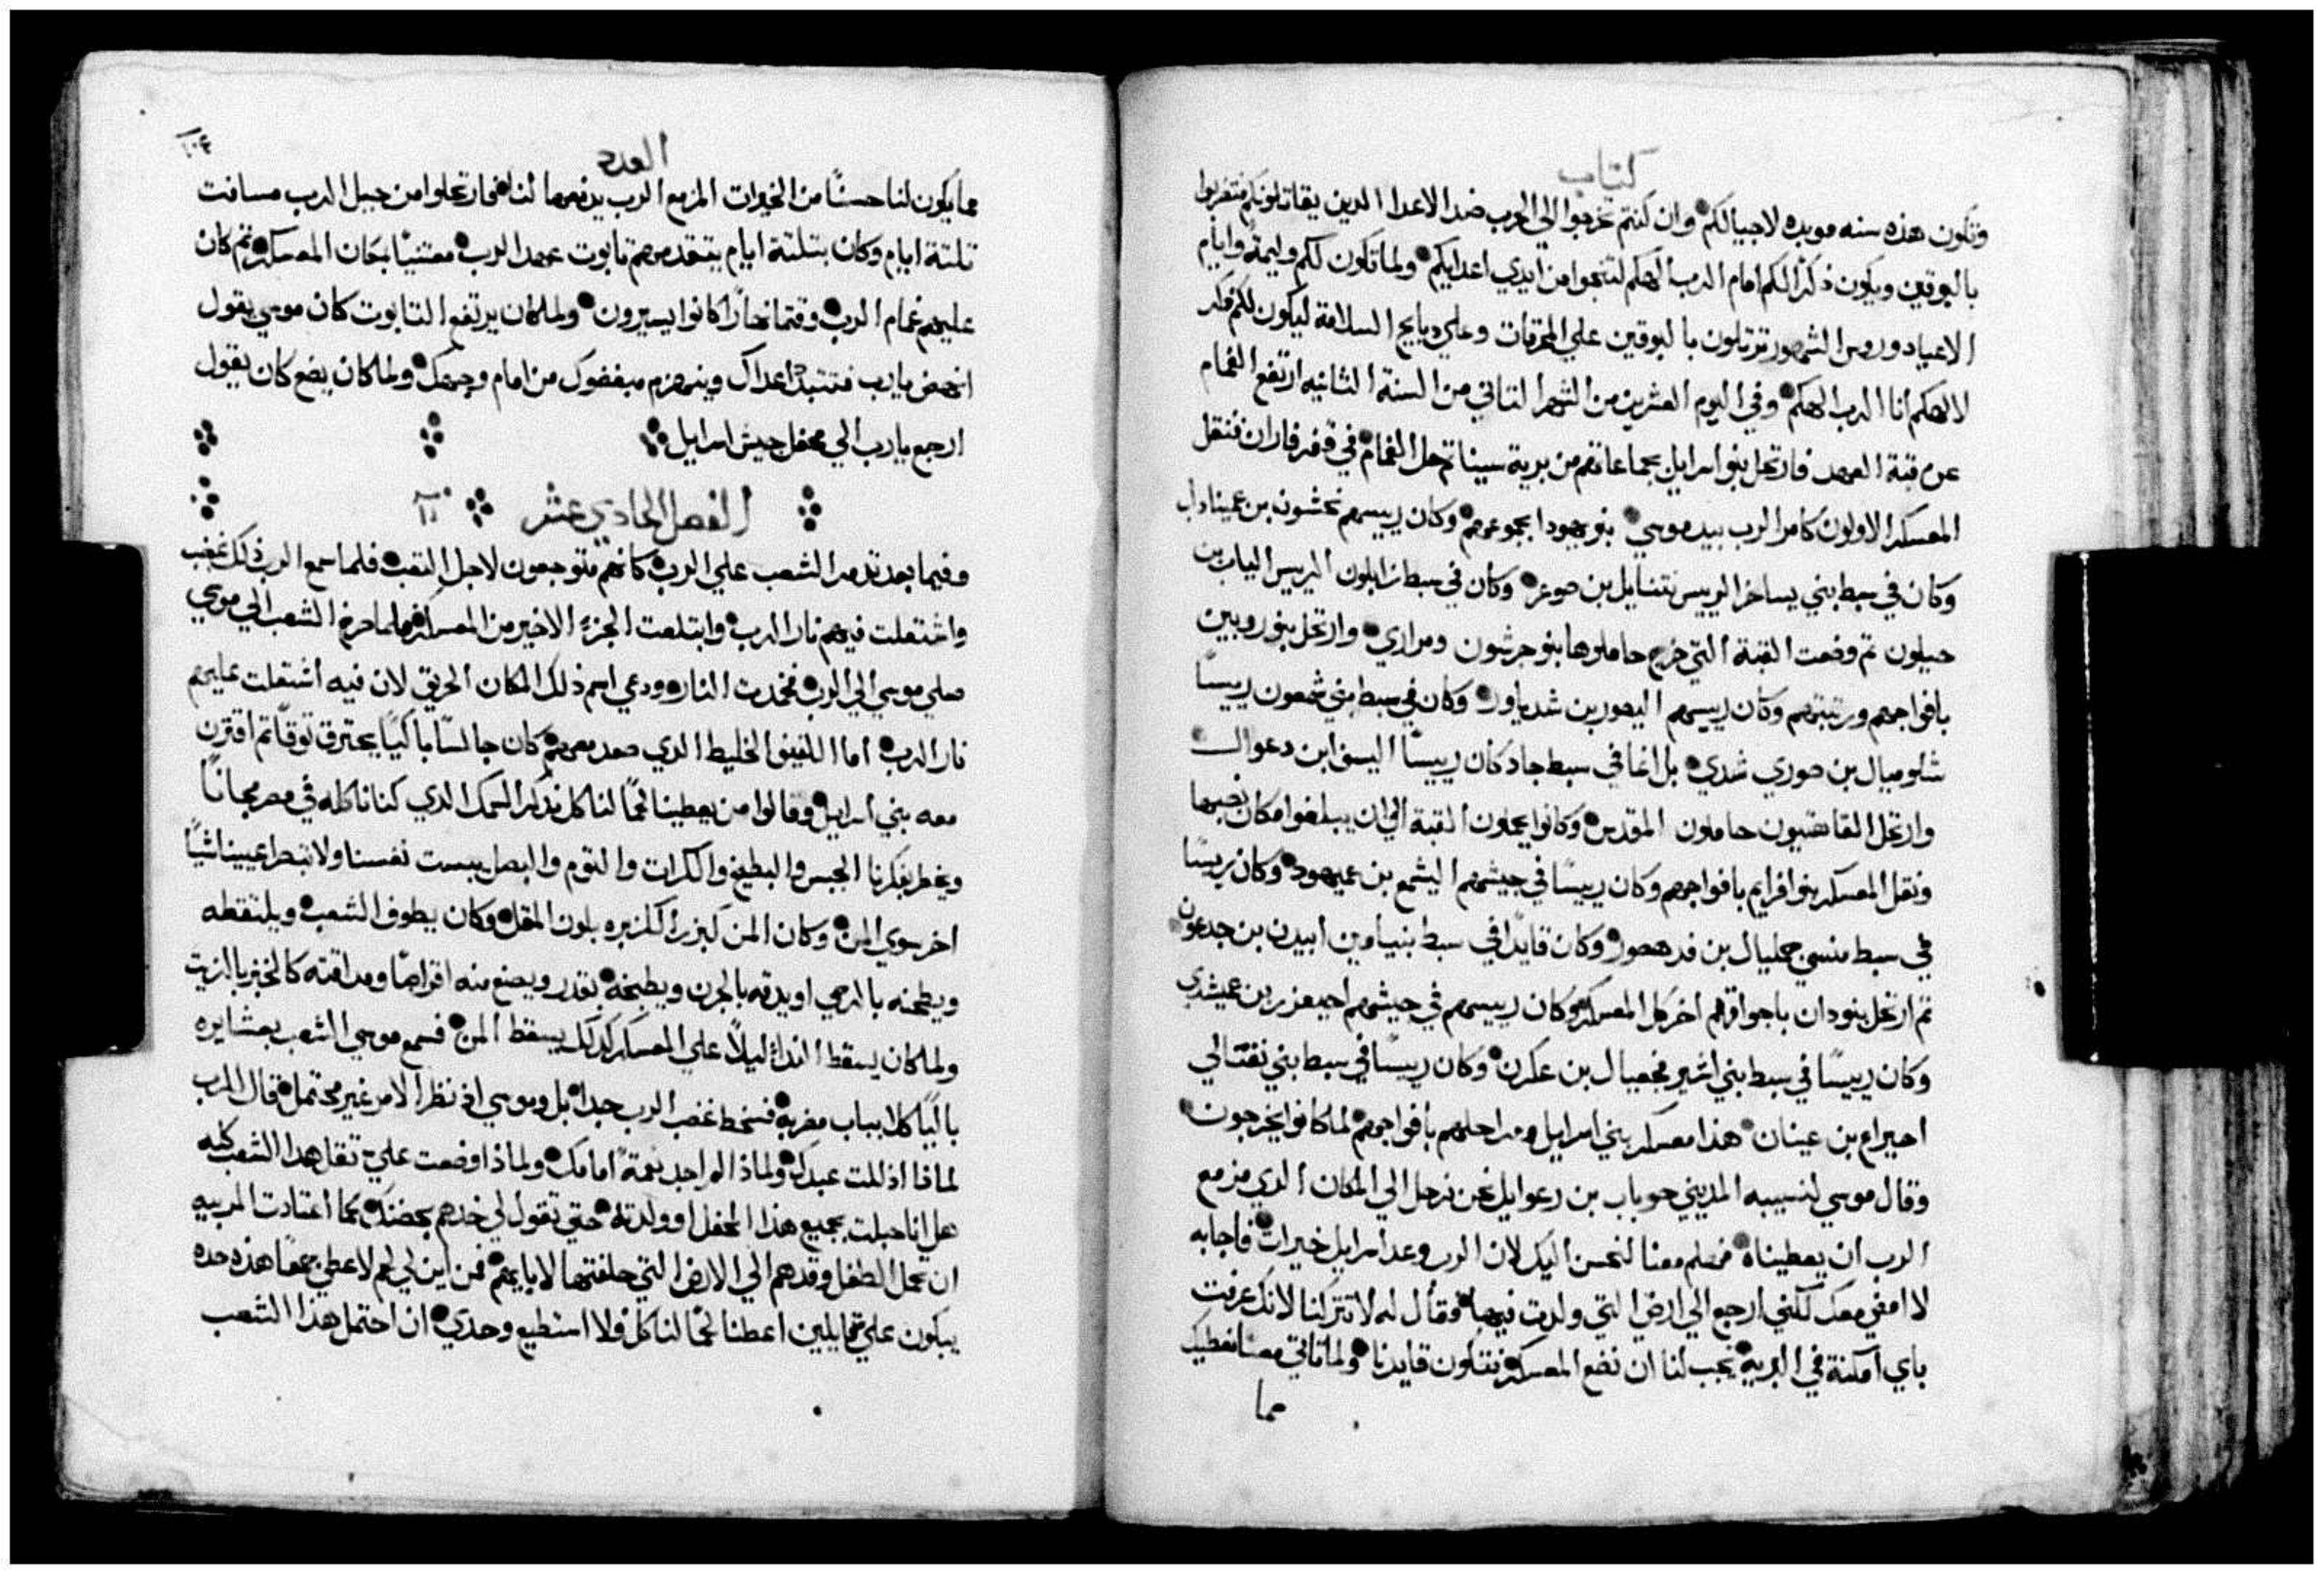 كتاب
وتكون هذه سنه موبده لاجيالكم وان كنتم تخرجوا الي الحرب ضد الاعدا الدين يقاتلونكم فتضربوا
بالبوقين ويكون ذكرًا لكم امام الرب الهكم لتنجوا من ايدي اعدايكم ولما تكون لكم وليمة وايام
الاعياد وروس الشهور ترتلون بالبوقين علي المحرقات وعلي دبايح السلامة ليكون لكم ذكر
لالهكم انا الرب الهكم وفي اليوم العشرين من الشهر التاني من السنة الثانيه ارتفع الغمام
عن قبة العهد فارتحل بنو اسرايل بجماعاتهم من برية سينا تم حل الغمام في قفر فاران فنقل
المعسكر الاولون كامر الرب بيد موسي بنو يهودا بجموعهم وكان رييسهم نحشون بن عميناداب
وكان في سبط بني يساخر الرييس نتنايل بن صوعر وكان في سبط زابلون الرييس الياب بن
حيلون تم وضعت القبة التي خرج حاملوها بنو جرشون ومراري وارتحل بنو روبين
بافواجهم ورتبتهم وكان رييسهم اليصور بن شدياور وكان في سبط بني شمعون رييسًا
شلوميال بن صوري شدي بل اغا في سبط جاد كان رييسًا اليسف ابن دعوال
وارتحل القاهتيون حاملون المقدس وكانوا يحملون القبة الي ان يبلغوا مكان نصبها
ونقل المعسكر بنو افرايم بافواجهم وكان رييسًا في جيشهم اليشمع بن عميهود وكان رييسًا
في سبط منسي جمليال بن فدهصور وكان قايدًا في سبط بنيامين ابيدن بن جدعون
تم ارتحل بنو دان باجواقهم اخر كل المعسكر وكان رييسهم في جيشهم احيعزر بن عميشدي
وكان رييسًا في سبط بني اشير فجعيال بن عكرن وكان رييسًا في سبط بني نفتالي
احيراع بن عينان هذا معسكر بني اسرايل ومراحلهم بافواجهم لما كانوا يخرجون
وقال موسي لنسيبه المديني حوباب بن رعوايل نحن نرحل الي المكان الدي مزمع
الرب ان يعطيناه فهلم معنا لنحسن اليك لان الرب وعد اسرايل خيرات فاجابه
لا امضي معك لكنني ارجع الي ارضي التي ولدت فيها فقال له لا تتركنا لانك عرفت
باي امكنة في البرية يجب لنا ان نضع المعسكر فتكون قايدنا ولما تاتي معنا نعطيك
مما
العدد
١٠٣
مما يكون لنا حسنًا من الخيرات المزمع الرب يدفعها لنا فارتحلوا من جبل الرب مسافت
تلتة ايام وكان بتلتة ايام يتقدمهم تابوت عهد الرب معتنيًا بمكان المعسكر تم كان
عليهم غمام الرب وقتما نهارًا كانوا يسيرون ولما كان يرتفع التابوت كان موسي يقول
انهض يا رب فتتبدد اعداك وينهزم مبغضوك من امام وجهك ولما كان يضع كان يقول
ارجع يا رب الي محفل جيش اسرايل
الفصل الحادي عشر ١١
وفيما بعد تدمر الشعب علي الرب كانهم متوجعون لاجل التعب فلما سمع الرب ذلك غضب
واشتعلت فيهم نار الرب وابتلعت الجزء الاخير من المعسكر فلما صرخ الشعب الي موسي
صلي موسي الي الرب فخمدت النار ودعي اسم ذلك المكان الحريق لان فيه اشتعلت عليهم
نار الرب اما اللفيف الخليط الدي صعد معهم كان جالسًا باكيًا يحترق توقًا تم اقترن
معه بني اسرايل وقالوا من يعطينا لحمًا لناكل نذكر السمك الدي كنا ناكله في مصر مجانًا
ويخطر بفكرنا الجبس والبطيخ والكرات والتوم والبصل يبست نفسنا ولا تبصر اعييننا شيًا
اخر سوي المن وكان المن كبزر الكزبره بلون المقل وكان يطوف الشعب ويلتقطه
ويطحنه بالرحي او يدقه بالجرن ويطبخه بقدر ويصنع منه اقراصًا ومداقته كالخبز بالزيت
ولما كان يسقط الندا ليلاً علي المعسكر كدلك يسقط المن فسمع موسي الشعب بعشايره
باكيًا كلا بباب مضربه فسخط غضب الرب جدا بل وموسي اذ نظر الامر غير محتمل قال للرب
لماذا اذللت عبدك ولماذا لم اجد نعمة امامك ولماذا وضعت علي تقل هدا الشعب كله
هل انا حبلت بجميع هذا المحفل او ولدته حتي تقول لي خدهم بحضنك كما اعتادت المربيه
ان تحمل الطفل وقدهم الي الارض التي حلفتها لابايهم فمن اين لي لحم لاعطي جمعًا هذه حده
يبكون علي قايلين اعطنا لحمًا لناكل ولا استطيع وحدي ان احتمل هذا الشعب